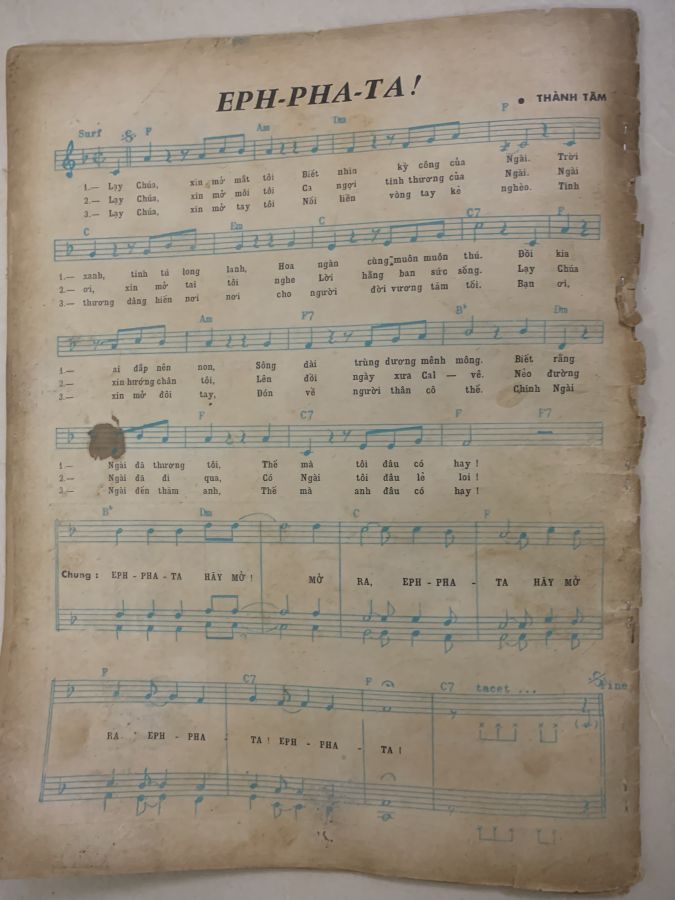 EPH-PHA-TA!
• THÀNH TÂM
Surf F Am Dm F
1.— Lạy Chúa, xin mở mắt tôi Biết nhìn kỳ công của Ngài. Trời
2.— Lạy Chúa, xin mở môi tôi Ca ngợi tình thương của Ngài. Ngài
3.— Lạy Chúa, xin mở tay tôi Nối liền vòng tay kẻ nghèo. Tình
C Em C C7 F
1.— xanh, tinh tú long lanh, Hoa ngàn cùng muôn muôn thú. Đồi kia
2.— ơi, xin mở tai tôi nghe Lời hằng ban sức sống. Lạy Chúa
3.— thương dâng hiến nơi nơi cho người đời vương tăm tối. Bạn ơi,
Am F7 Bb Dm
1.— ai đắp nên non, Sông dài trùng dương mênh mông. Biết rằng
2.— xin hướng chân tôi, Lên đồi ngày xưa Cal — vê. Nẻo đường
3.— xin mở đôi tay, Đón về người thân cô thế. Chính Ngài
F C7 F F7
1.— Ngài đã thương tôi, Thế mà tôi đâu có hay !
2.— Ngài đã đi qua, Có Ngài tôi đâu lẻ loi !
3.— Ngài đến thăm anh, Thế mà anh đâu có hay !
Bb Dm C F
Chung : EPH - PHA - TA HÃY MỞ ! MỞ RA, EPH - PHA - TA HÃY MỞ
F C7 F C7 tacet ... Fine
RA. EPH - PHA - TA ! EPH - PHA - TA !